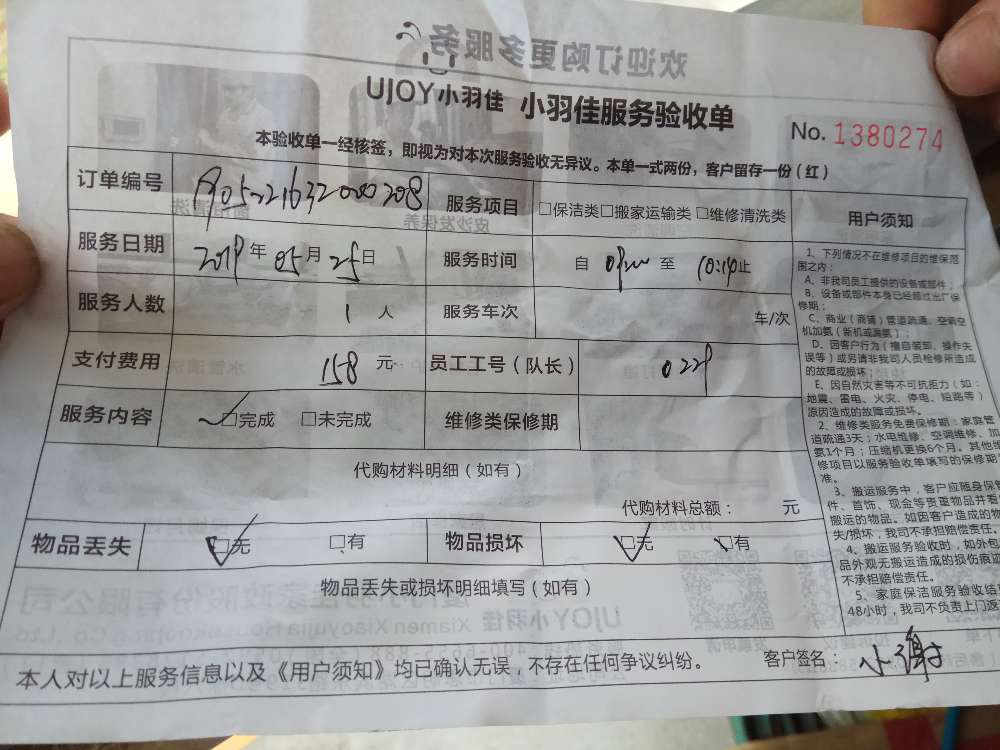 欢迎订购更多服务
UJOY小羽佳 小羽佳服务验收单
No. 1380274
本验收单一经核签，即视为对本次服务验收无异议。本单一式两份，客户留存一份（红）
订单编号 服务项目 □保洁类□搬家运输类□维修清洗类 用户须知
服务日期 2019年05月25日 服务时间 自 至 10:14止
服务人数 1 人 服务车次 车/次
支付费用 158 元 员工工号（队长） 0229
服务内容 □完成 □未完成 维修类保修期
代购材料明细（如有）
代购材料总额： 元
物品丢失 □无 □有 物品损坏 □无 □有
物品丢失或损坏明细填写（如有）
本人对以上服务信息以及《用户须知》均已确认无误，不存在任何争议纠纷。 客户签名：小谢
1、下列情况不在维修项目的维保范
围之内：
A、非我司员工提供的设备或部件；
B、设备或部件本身已经超过出厂保
修期；
C、商业（商铺）管道疏通、空调空
机加氨（新机或漏氨）；
D、因客户行为（擅自装卸、操作失
误等）或另请非我司人员检修所造成
的故障或损坏；
E、因自然灾害等不可抗拒力（如：
地震、雷电、火灾、停电、短路等）
原因造成的故障或损坏。
2、维修类服务免费保修期：家庭管
道疏通3天；水电维修、空调维修、加
氨1个月；压缩机更换6个月。其他维
修项目以服务验收单填写的保修期
准。
3、搬运服务中，客户应随身保管
件、首饰、现金等贵重物品并看
搬运的物品。如因客户造成的物
失/损坏，我司不承担赔偿责任。
4、搬运服务验收时，如外包
品外观无搬运造成的损伤痕迹
不承担赔偿责任。
5、家庭保洁服务验收结
48小时，我司不负责上门返